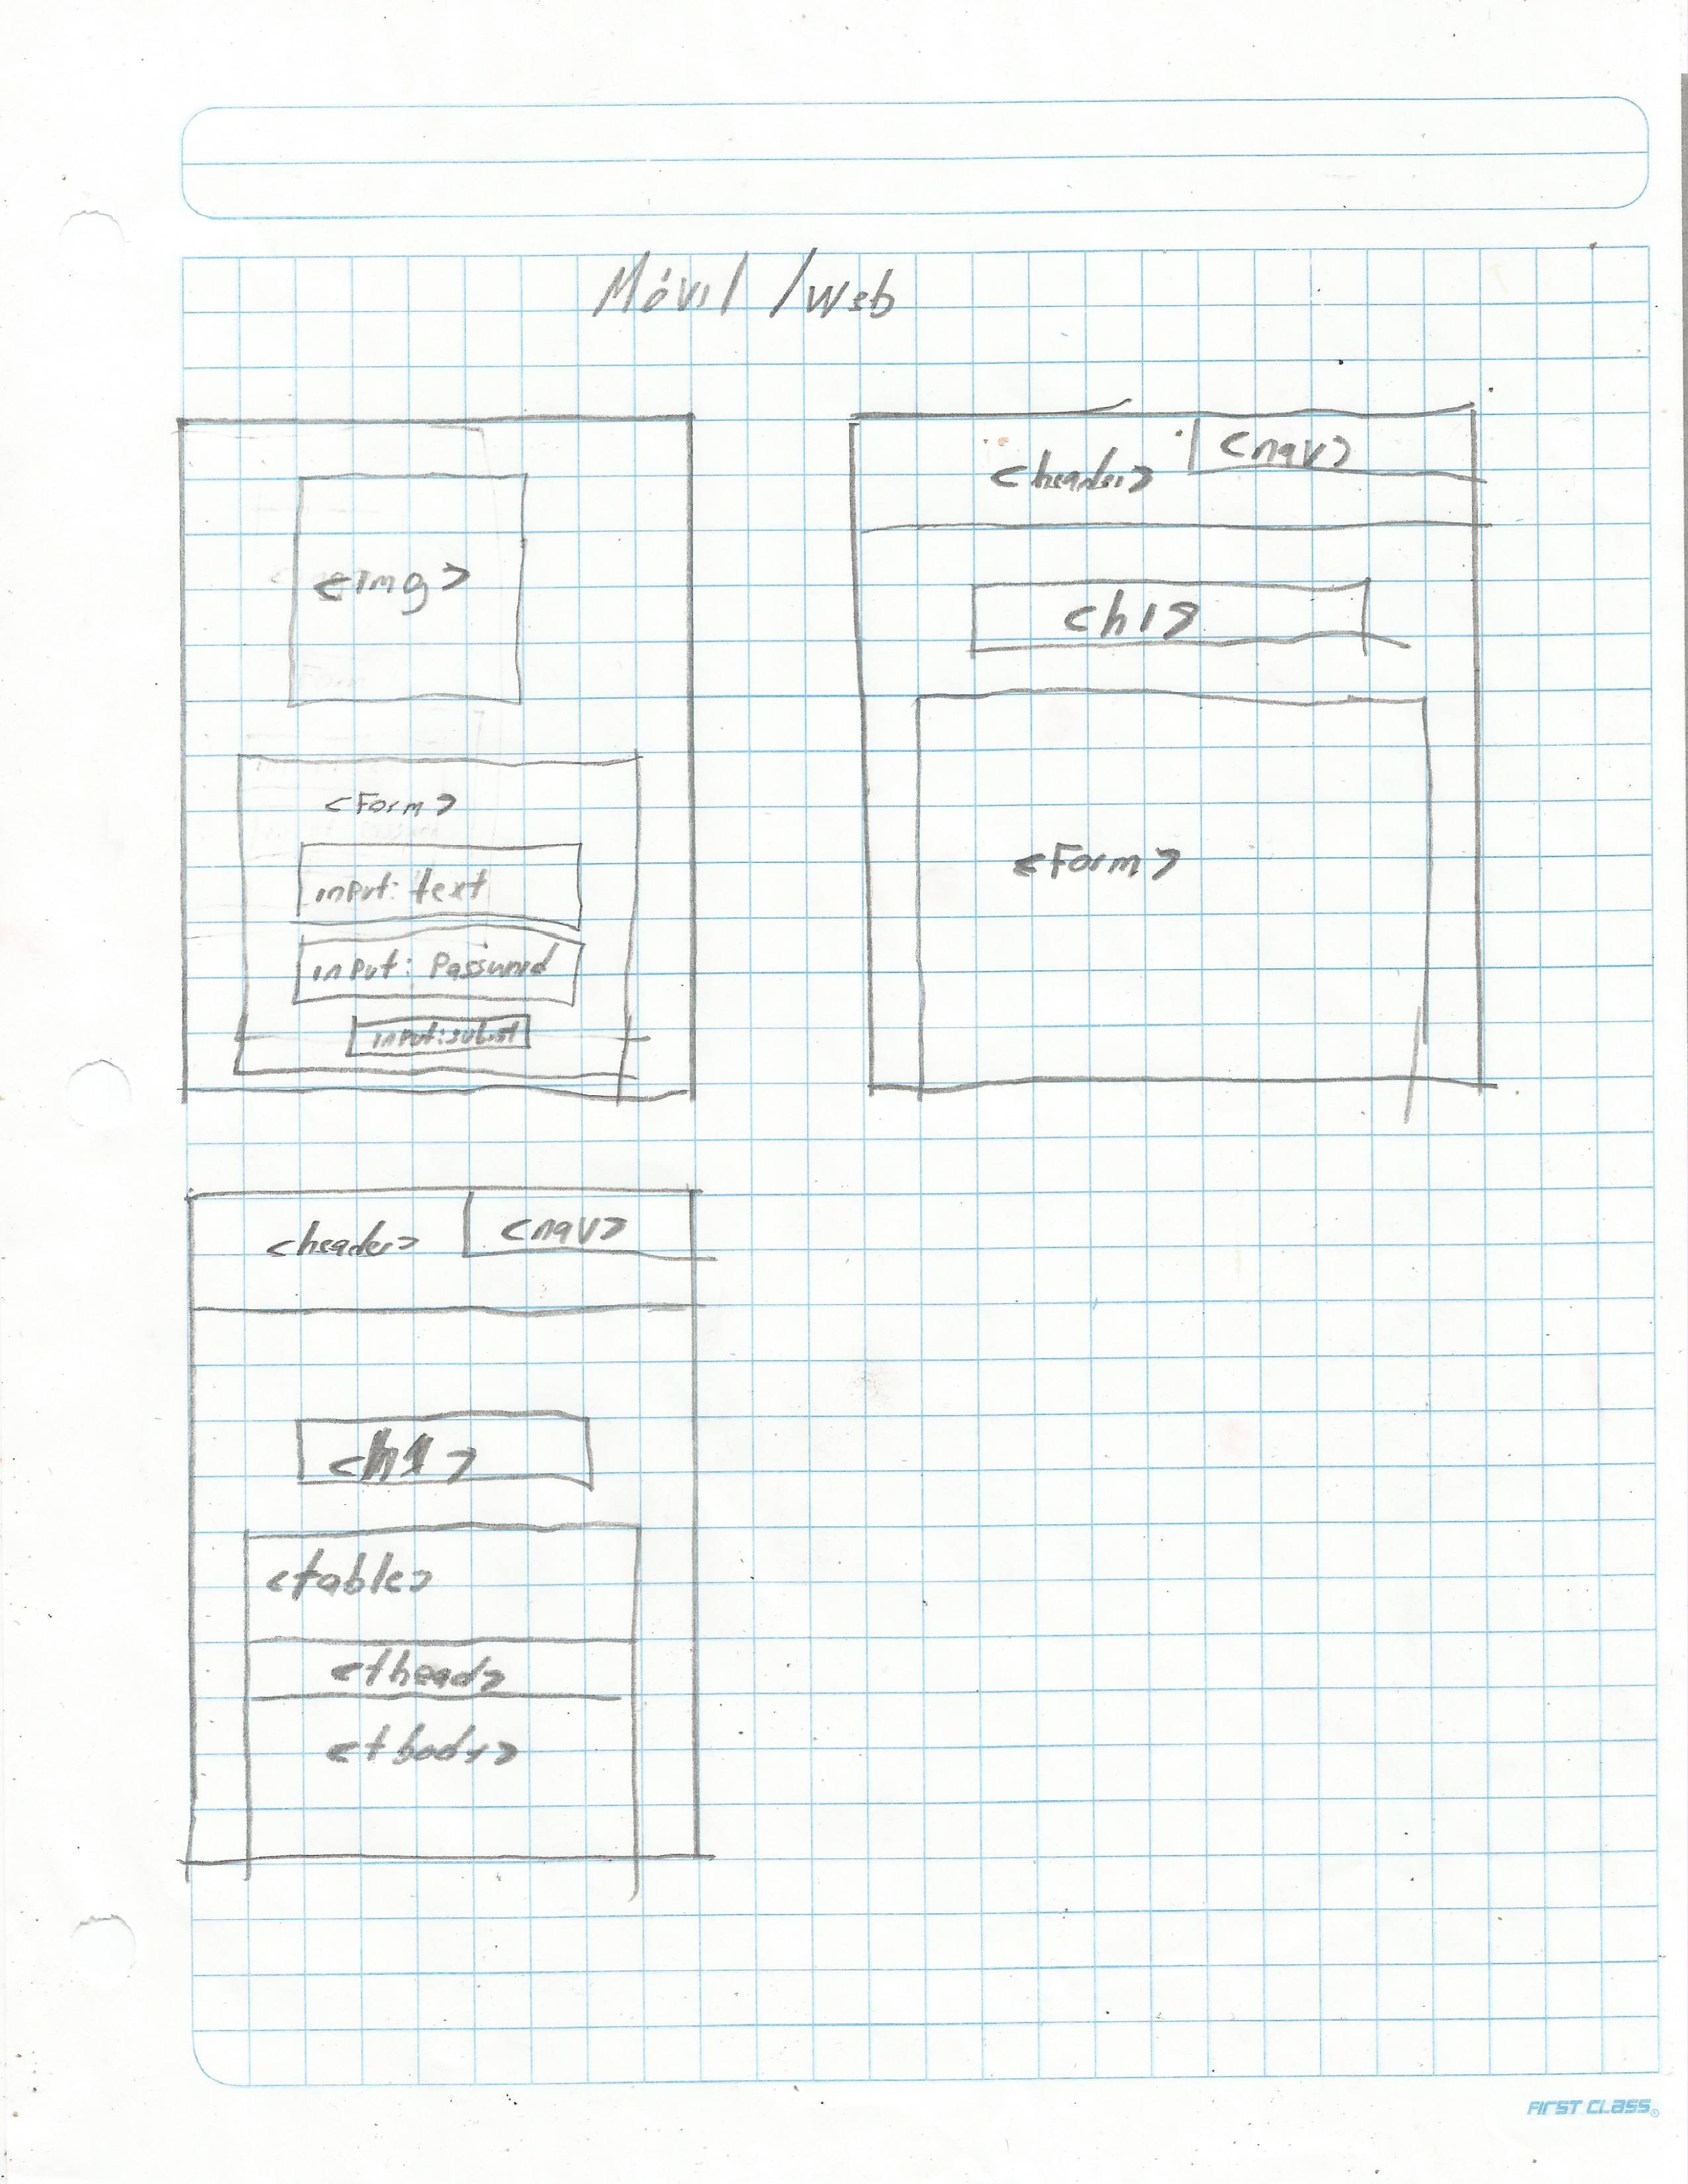 Móvil / Web
<img>
<Form>
input: text
input: Password
input:submit
<header>
<nav>
<h1>
<Form>
<header>
<nav>
<h1>
<table>
<thead>
<tbody>
FIRST CLASS